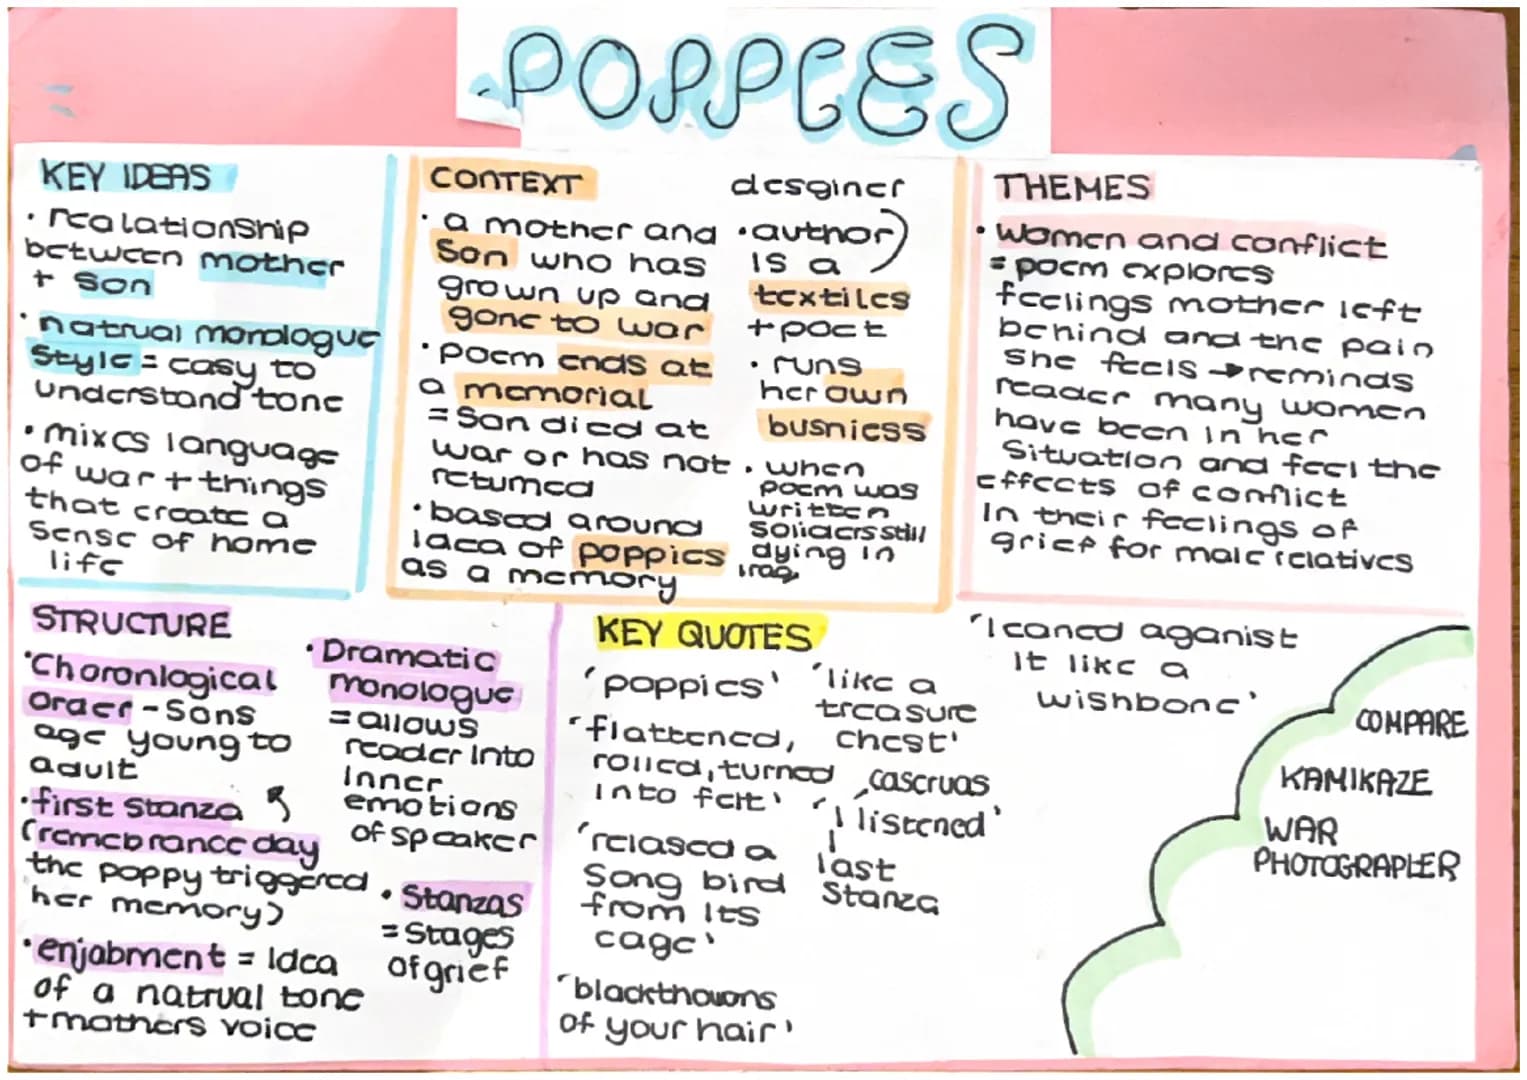 POPPIES
KEY IDEAS
· realationship
between mother
+ son
· natrual monologue
style = easy to
understand tone
· mixes language
of war + things
that create a
sense of home
life
CONTEXT
· a mother and
son who has
grown up and
gone to war
· poem ends at
a memorial
= Son died at
war or has not
returned
· based around
idea of poppies
as a memory
desginer
· author)
is a
textiles
+ poet
· runs
her own
busniess
· when
poem was
written
soliders still
dying in
iraq
THEMES
· women and conflict
= poem explores
feelings mother left
behind and the pain
she feels → reminds
reader many women
have been in her
situation and feel the
effects of conflict
in their feelings of
grief for male relatives
STRUCTURE
· Choronlogical
order - Sons
age young to
adult
· first stanza
(remebrance day
the poppy triggered
her memory)
· enjabment = idea
of a natrual tone
+ mothers voice
· Dramatic
monologue
= allows
reader into
inner
emotions
of speaker
· Stanzas
= stages
of grief
KEY QUOTES
'poppies'
'flattened,
rolled, turned
into felt'
'relased a
song bird
from its
cage'
'blackthouons
of your hair'
'like a
treasure
chest'
, caseruas
'I listened'
last
stanza
'leaned aganist
it like a
wishbone'
COMPARE
KAMIKAZE
WAR
PHOTOGRAPLER